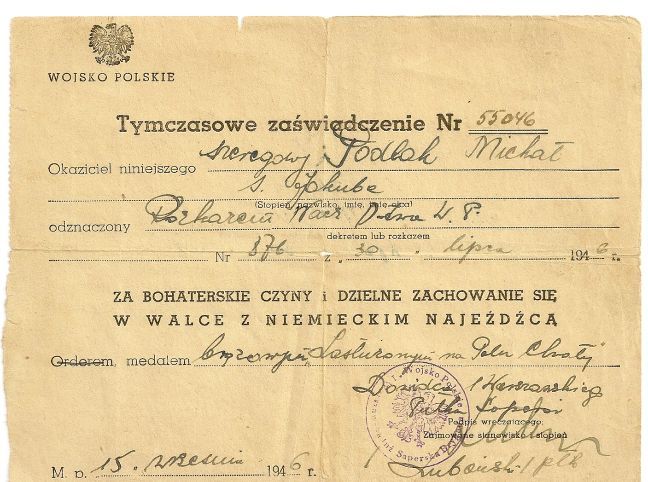 WOJSKO POLSKIE
Tymczasowe zaświadczenie Nr 55046
Okaziciel niniejszego szeregowy Podlak Michał
s. Jakuba
(Stopień, nazwisko, imię, imię ojca)
odznaczony Rozkazem Nacz. D-twa W. P.
dekretem lub rozkazem
Nr 376 z „30" lipca 1946 r.
ZA BOHATERSKIE CZYNY i DZIELNE ZACHOWANIE SIĘ
W WALCE Z NIEMIECKIM NAJEŹDŹCĄ
Orderem, medalem brązowym „Zasłużonym na Polu Chwały"
Dowódca 1 Warszawskiego
Pułku Saperów
Podpis wręczającego,
Zajmowane stanowisko i stopień
Wojsko Polskie
Saperska
M. p. 15. września 1946 r.
/ płk